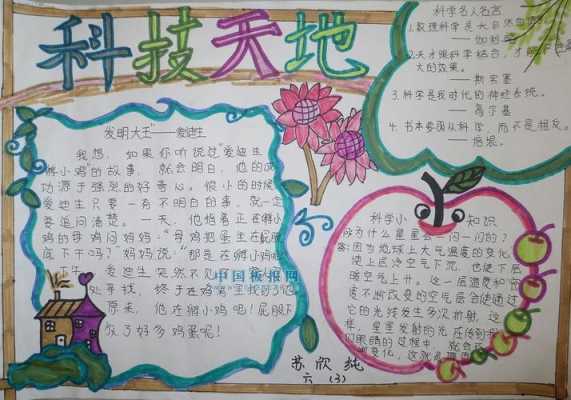 科技天地
发明大王"——爱迪生
我想,如果你听说过"爱迪生
孵小鸡"的故事,就会明白,他的成
功源于强烈的好奇心。很小的时候
爱迪生只要一有不明白的事,就一定
要追问清楚。一天,他指着正在孵小
鸡的母鸡问妈妈:"母鸡把蛋坐在屁股
底下干吗?"妈妈说:"那是在孵小鸡呢
爱迪生突然不见
处寻找,终于在鸡窝里找到了他
原来,他在孵小鸡吧!屁股下
放了好多鸡蛋呢!
中国板报网
科学名人名言
——伽利略
2.天才跟科学结合,才
大的效果。
——斯宾塞
3.科学是我时代的神经系统。
——高尔基
4.书本要围从科学,而不是相反。
——培根。
科学小知识
为什么星星会一闪一闪的?
答:因为地球上大气温度的变化
使上层冷空气下沉,也使下层
暖空气上升。这一层温度和密
度不断改变的空气层会使通过
它的光线发生多次折射,这
样,星星发射的光在传到
们眼睛的过程中,就会
苏欣纯
六(3)